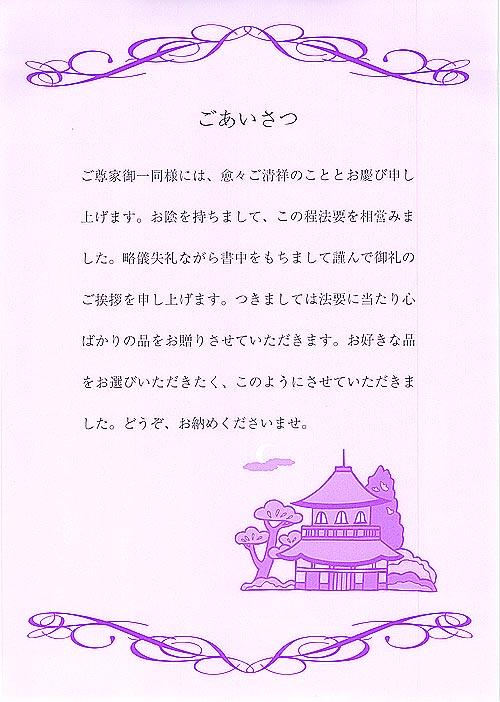 ごあいさつ
ご尊家御一同様には、愈々ご清祥のこととお慶び申し
上げます。お陰を持ちまして、この程法要を相営みま
した。略儀失礼ながら書中をもちまして謹んで御礼の
ご挨拶を申し上げます。つきましては法要に当たり心
ばかりの品をお贈りさせていただきます。お好きな品
をお選びいただきたく、このようにさせていただきま
した。どうぞ、お納めくださいませ。